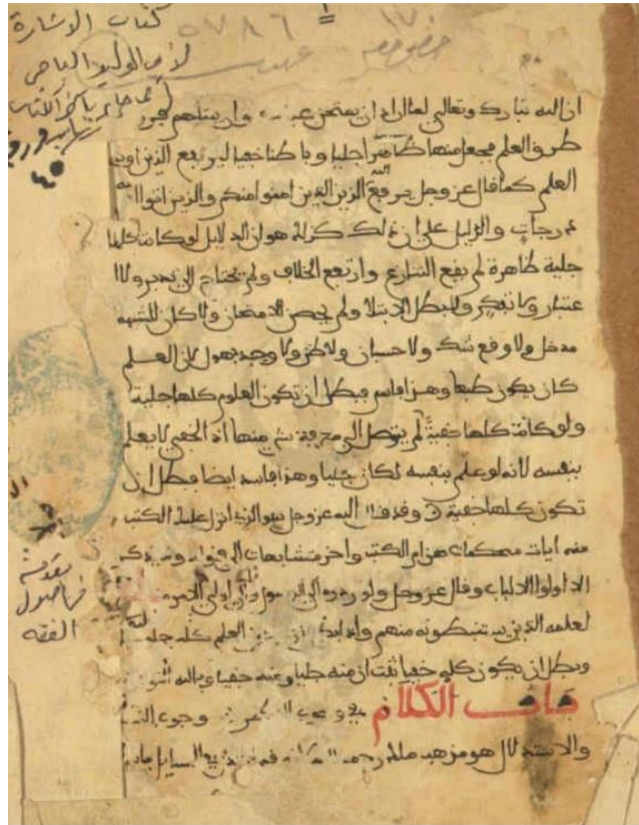 كتاب الاشارة
لابي الوليد الباجي
٥٧٨٦
١٧٠
ان الله تبارك وتعالى لما اراد ان يمتحن عباده وان يبتليهم فرق بين
طرق العلم فجعل منها ظاهرا جليا وباطنا خفيا ليرفع الذين اوتوا
العلم كما قال عز وجل يرفع الله الذين امنوا منكم والذين اوتوا
درجات والدليل على ان ذلك كذلك هو ان الدلايل لو كانت كلها
جلية ظاهرة لم يقع التنازع وارتفع الخلاف ولم يحتاج الى تدبر ولا ا
عتبار ولا تفكر ولبطل الابتلا ولم يحصل الامتحان ولا كان للشبهه
مدخل ولا وقع شك ولا حسبان ولا ظن ولا وجد ذهول لان العلم
كان يكون طبعا وهذا فاسد فبطل ان تكون العلوم كلها جلية
ولو كانت كلها خفية لم يتوصل الى معرفة شي منها اذ الخفي لا يعلم
بنفسه لانه لو علم بنفسه لكان جليا وهذا فاسد ايضا فبطل ان
تكون كلها خفية وقد قال الله عز وجل هو الذي انزل عليك الكتب
منه ايات محكمات هن ام الكتب واخر متشابهات الى قوله وما يذكر
الا اولوا الالباب وقال عز وجل ولو ردوه الى الرسول والى اولي الامر منهم
لعلمه الذين يستنبطونه منهم العلم كله جلي
وبطل ان يكون كله خفيا ثبت ان منه جليا ومنه خفيا وبالله التوفيق
باب الكلام في وجوب
والاستدلال هو مذهب ملك رحمه الله
مقدمة
في اصول
الفقه